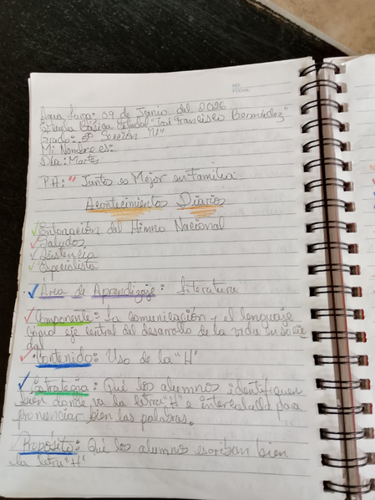 09 de Junio del 2026
"José Francisco Bermúdez"
Grado: Sección "U"
Mi Nombre es:
Día: Martes
P.H: "Juntos es Mejor en familia.
Acontecimientos Diarios
Entonación del Himno Nacional
Saludos
Asistencia
Especialista
Area de Aprendizaje: Literatura
Componente: La comunicación y el lenguaje
como eje central del desarrollo de la vida
Contenido: Uso de la "H"
Estrategia: Qué los alumnos identifiquen
bien donde va la letra "H" e intercalada para
pronunciar bien las palabras.
Propósito: Qué los alumnos escriban bien
la letra "H"